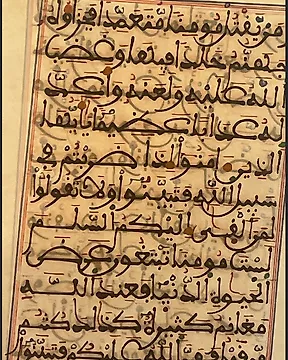 ومن يقتل مومنا متعمدا فجزاوه
جهنم خلدا فيها وغضب
الله عليه ولعنه واعد
له عذابا عظيما يايها
الذين امنوا اذا ضربتم في
سبيل الله فتبينوا ولا تقولوا
لمن القى اليكم السلم
لست مومنا تبتغون عرض
الحيوة الدنيا فعند الله
مغانم كثيرة كذلك كنتم
من قبل فمن الله عليكم فتبينوا